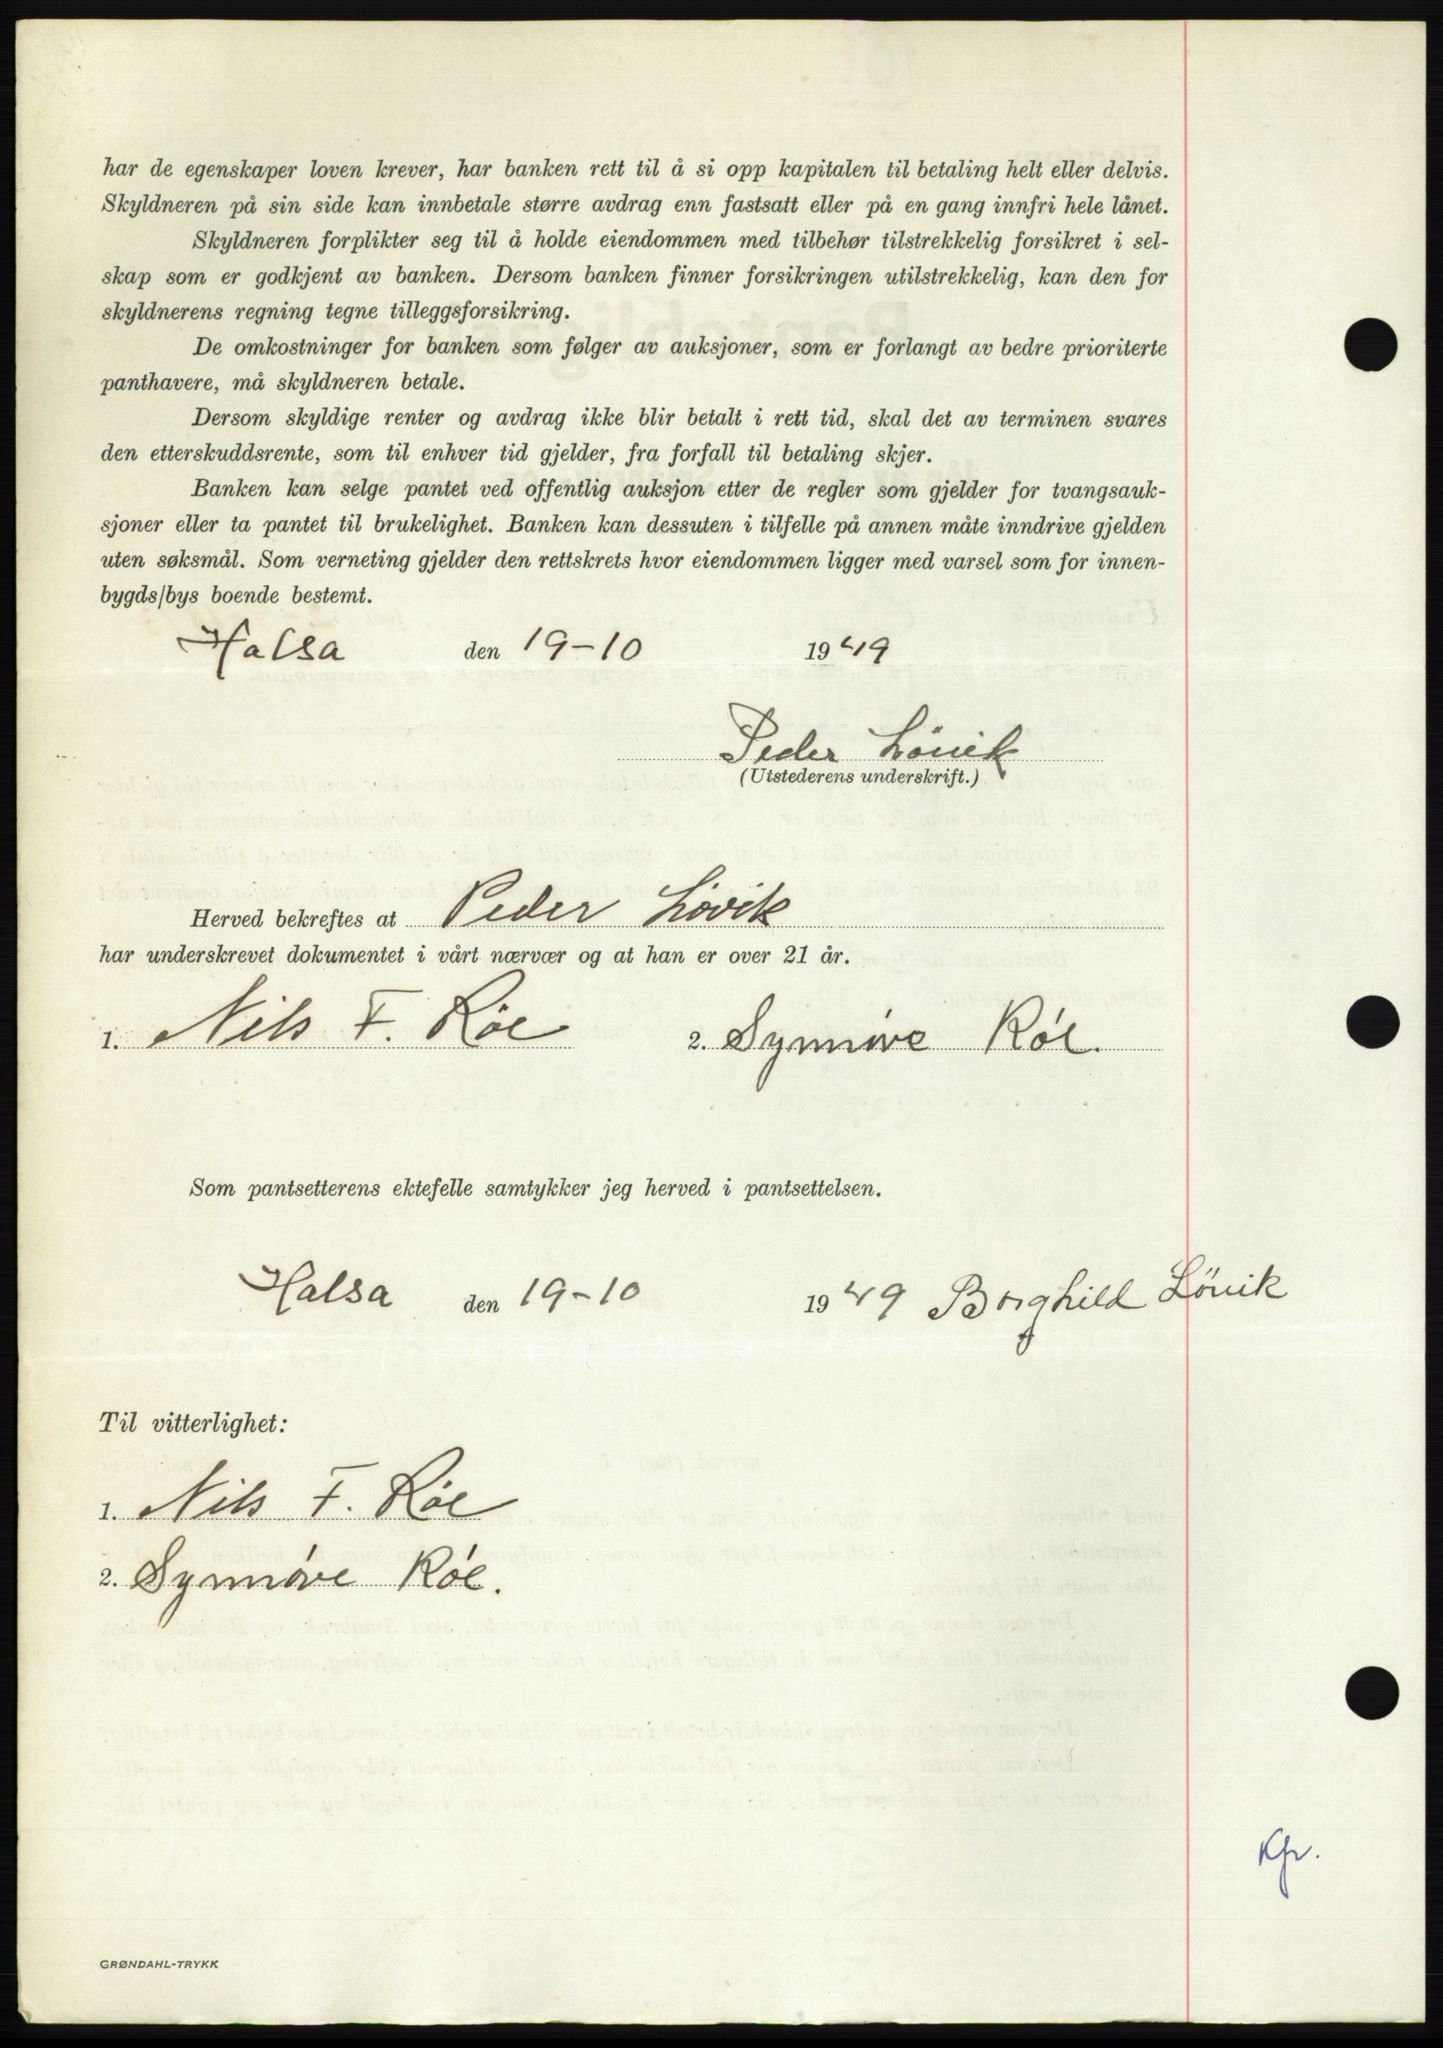 har de egenskaper loven krever, har banken rett til å si opp kapitalen til betaling helt eller delvis.
Skyldneren på sin side kan innbetale større avdrag enn fastsatt eller på en gang innfri hele lånet.
Skyldneren forplikter seg til å holde eiendommen med tilbehør tilstrekkelig forsikret i sel-
skap som er godkjent av banken. Dersom banken finner forsikringen utilstrekkelig, kan den for
skyldnerens regning tegne tilleggsforsikring.
De omkostninger for banken som følger av auksjoner, som er forlangt av bedre prioriterte
panthavere, må skyldneren betale.
Dersom skyldige renter og avdrag ikke blir betalt i rett tid, skal det av terminen svares
den etterskuddsrente, som til enhver tid gjelder, fra forfall til betaling skjer.
Banken kan selge pantet ved offentlig auksjon etter de regler som gjelder for tvangsauk-
sjoner eller ta pantet til brukelighet. Banken kan dessuten i tilfelle på annen måte inndrive gjelden
uten søksmål. Som verneting gjelder den rettskrets hvor eiendommen ligger med varsel som for innen-
bygds/bys boende bestemt.
Halsa den 19-10 1949
Peder Lövik
(Utstederens underskrift.)
Herved bekreftes at Peder Lövik
har underskrevet dokumentet i vårt nærvær og at han er over 21 år.
1. Nils F. Röe 2. Synnöve Röe.
Som pantsetterens ektefelle samtykker jeg herved i pantsettelsen.
Halsa den 19-10 1949 Borghild Lövik
Til vitterlighet:
1. Nils F. Röe
2. Synnöve Röe.
Kfr.
GRØNDAHL-TRYKK